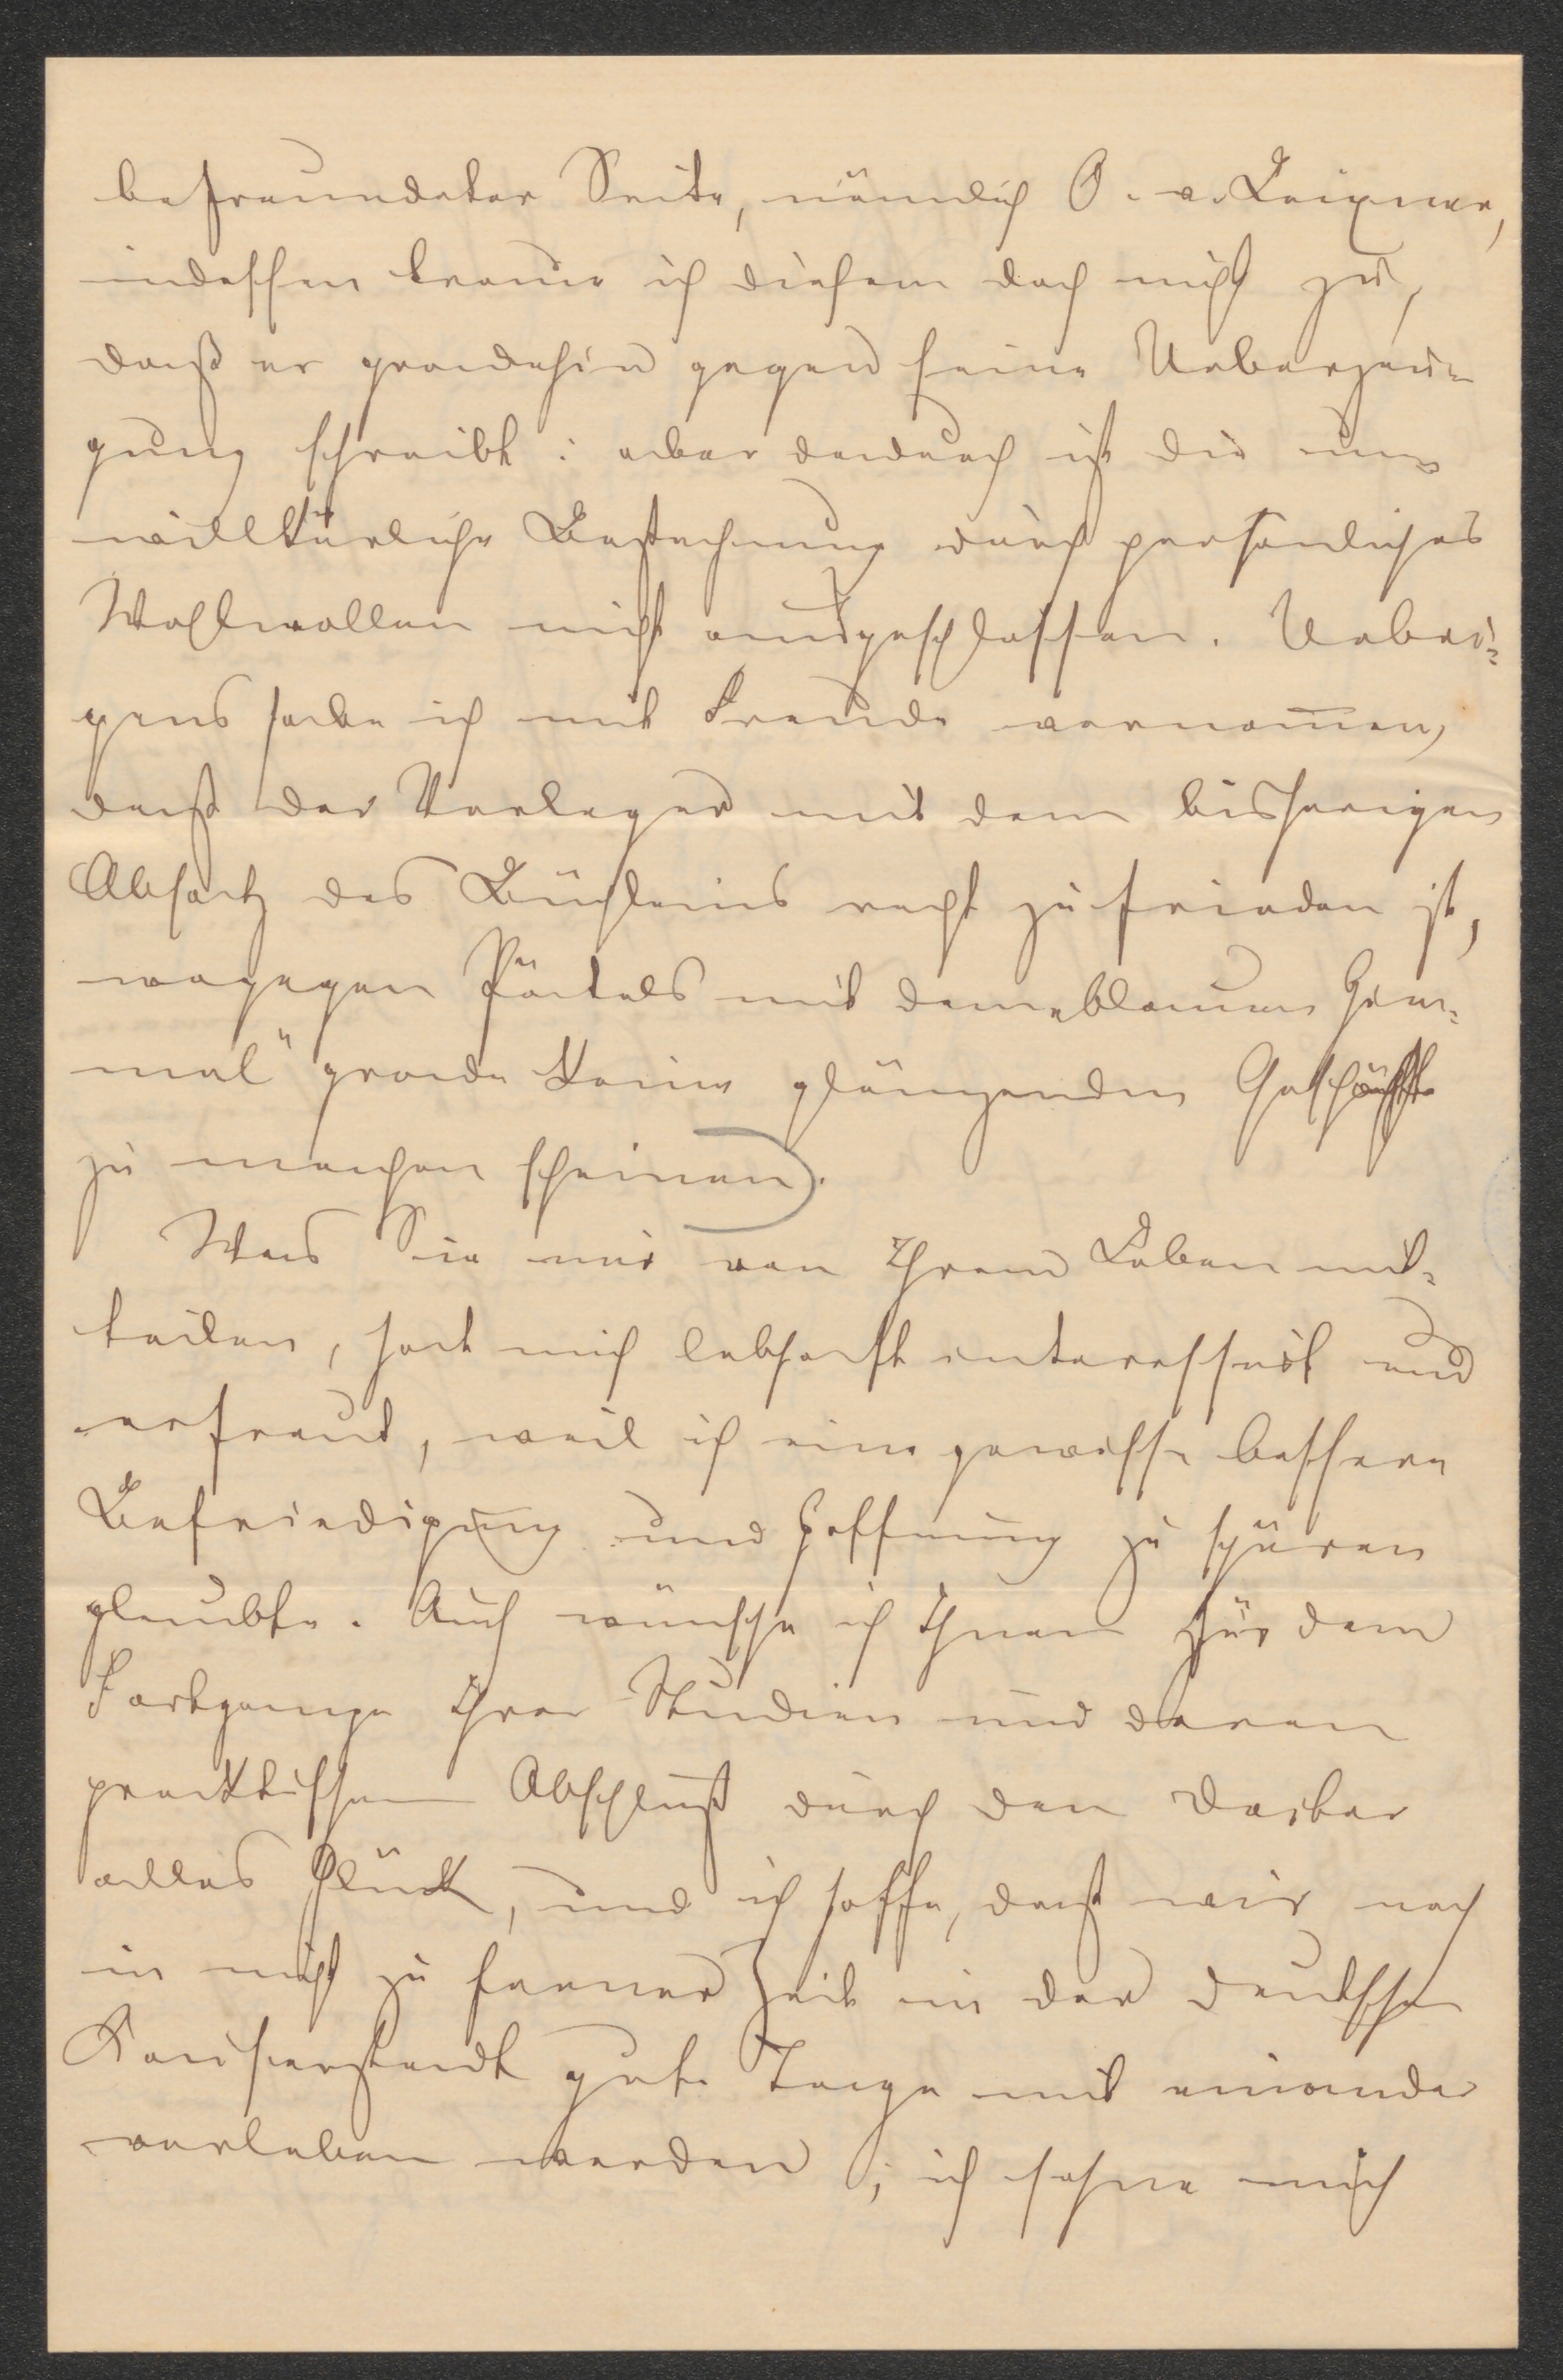 befreundeter Seite, nämlich O. v. Leixner,
indessen traue ich diesem doch nicht zu,
daß er gradehin gegen seine Ueberzeu-
gung schreibt: aber dadurch ist die un-
willkürliche Bestechung durch persönliches
Wohlwollen nicht ausgeschlossen. Uebri-
gens habe ich mit Freude vernom̅en,
daß der Verleger mit dem bisherigen
Absatz des Büchleins recht zufrieden ist,
wogegen Pätels mit dem „blauen
mal“ grade keine glänzenden Geschäfte
zu machen scheinen).
Was Sie mir von Ihrem Leben mit-
teilen, hat mich lebhaft interessirt und
erfreut, weil ich eine gewisse bessere
Befriedigung und Hoffnung zu spüren
glaubte. Auch wünsche ich Ihnen zur dem
Fortgange Ihrer Studien und deren
praktischem Abschluß durch den Doktor
alles Glück, und ich hoffe, daß wir noch
in nicht zu ferner Zeit in der deutschen
Kaiserstadt gute Tage mit einander
verleben werden; ich sehne mich